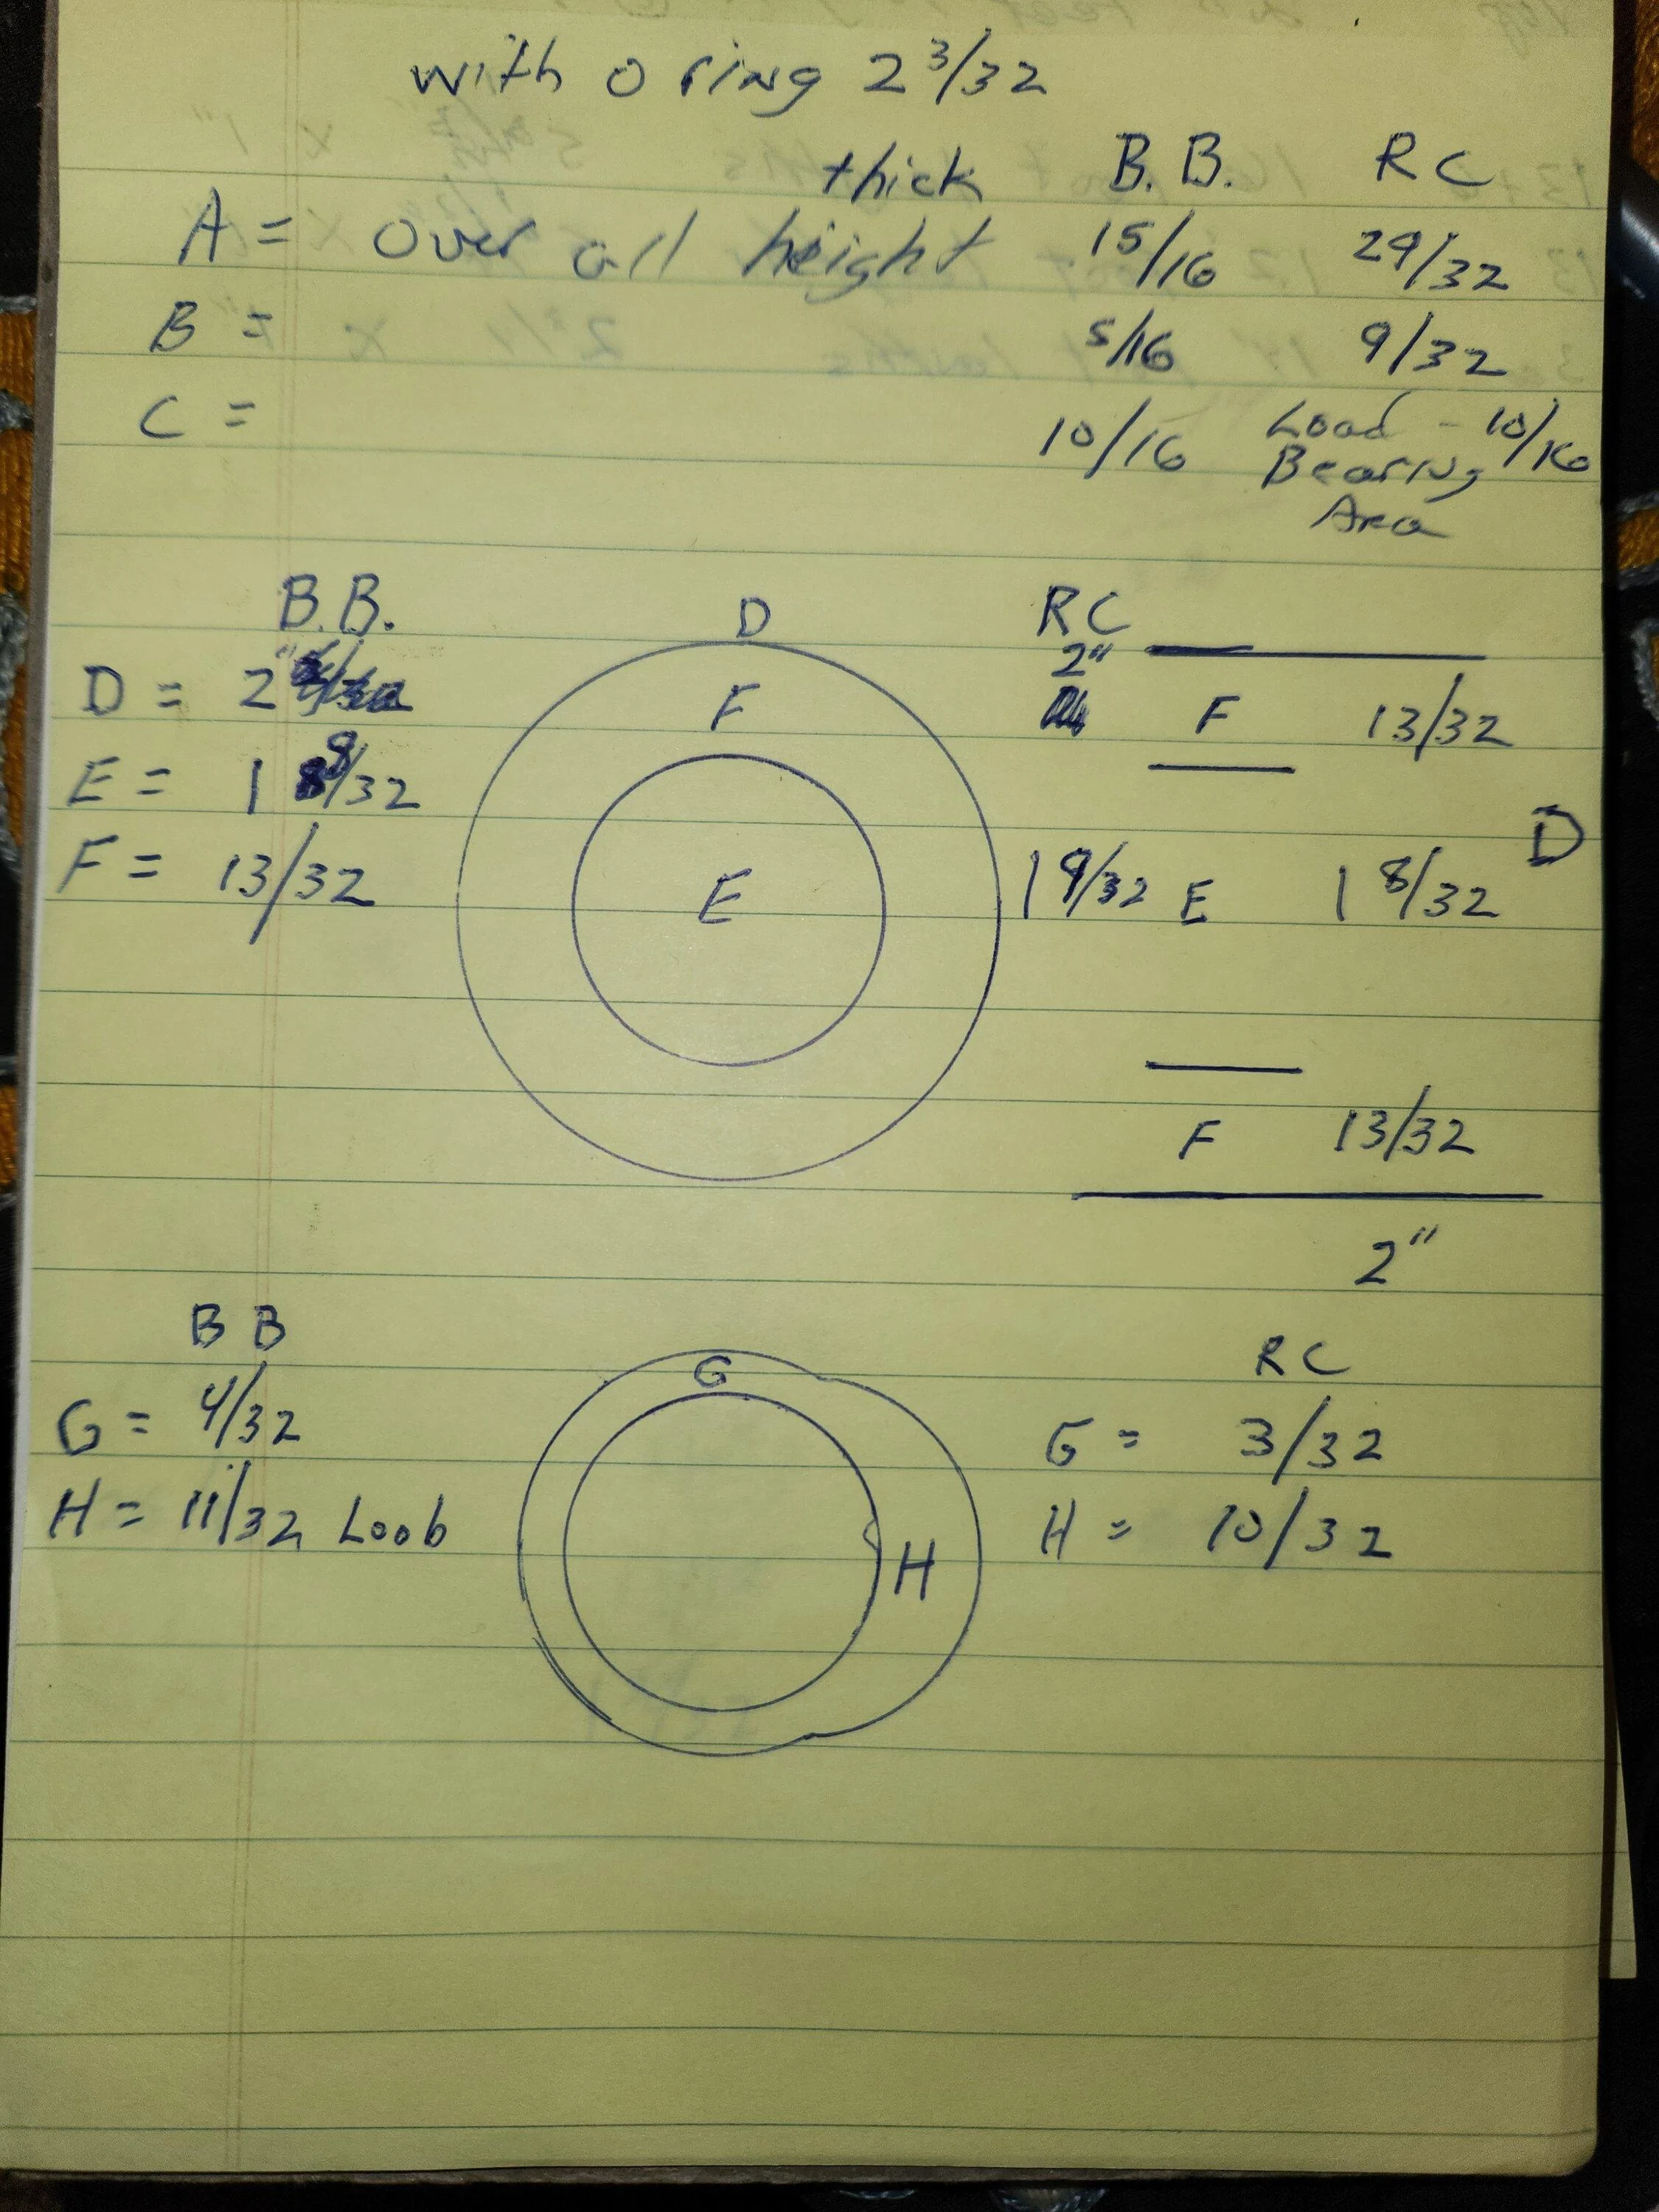 with o ring 2 3/32
thick B.B. RC
A = Over all height 15/16 29/32
B = 5/16 9/32
C = 10/16 Load - 10/16
Bearing
Area
B.B. D RC
2"
D = 2" F F 13/32
E = 1 8/32
D
F = 13/32 E 1 9/32 E 1 8/32
F 13/32
2"
BB G RC
G = 4/32 G = 3/32
H = 11/32 Loob H H = 10/32